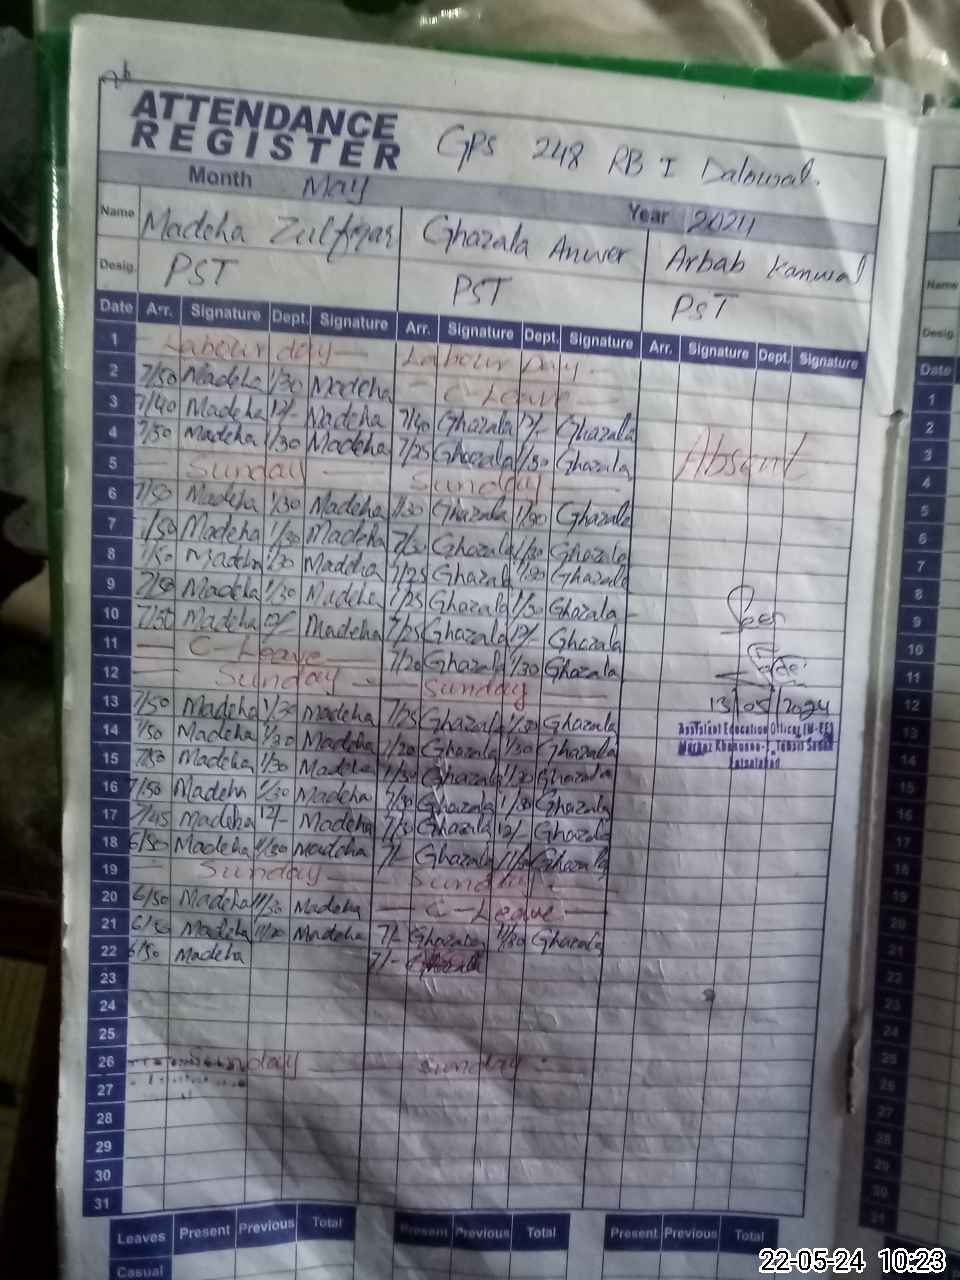 ATTENDANCE
REGISTER
GPS 248 RB I Dalowal.
Month May Year 2024
Name Madeha Zulfqar Ghazala Anwer Arbab Kanwal
Desig. PST PST PST
Date Arr. Signature Dept. Signature Arr. Signature Dept. Signature Arr. Signature Dept. Signature
1 Labour day Labour Day
2 7/50 Madeha 1/30 Madeha C-Leave
3 7/40 Madeha 12/- Madeha 7/40 Ghazala 12/- Ghazala
4 7/50 Madeha 1/30 Madeha 7/25 Ghazala 1/30 Ghazala
Absent
5 Sunday Sunday
6 7/50 Madeha 1/30 Madeha Ghazala 1/30 Ghazala
7 7/50 Madeha 1/30 Madeha 7/30 Ghazala 1/30 Ghazala
8 7/50 Madeha 1/30 Madeha 7/25 Ghazala 1/30 Ghazala
9 7/50 Madeha 1/30 Madeha 7/25 Ghazala 1/30 Ghazala
Seen
10 7/50 Madeha 12/- Madeha 7/25 Ghazala 12/- Ghazala
11 C-Leave 7/20 Ghazala 1/30 Ghazala
12 Sunday Sunday
13/05/2024
13 7/50 Madeha 1/30 Madeha 7/25 Ghazala 1/30 Ghazala
Assistant Education Officer (W-EE)
14 7/50 Madeha 1/30 Madeha 7/20 Ghazala 1/30 Ghazala
Markaz Tehsil Sadar
Faisalabad
15 7/50 Madeha 1/30 Madeha Ghazala 1/30 Ghazala
16 7/50 Madeha 1/30 Madeha 7/30 Ghazala 1/30 Ghazala
17 7/45 Madeha 12/- Madeha 7/30 Ghazala 12/- Ghazala
18 6/50 Madeha 11/30 Madeha 7/- Ghazala 11/30 Ghazala
19 Sunday Sunday
20 6/50 Madeha 11/30 Madeha C-Leave
21 6/50 Madeha 11/30 Madeha 7/- Ghazala 11/30 Ghazala
22 6/50 Madeha 7/- Ghazala
23
24
25
26 Sunday Sunday
27
28
29
30
31
Leaves Present Previous Total Present Previous Total Present Previous Total
Casual
Name
Desig.
Date
1
2
3
4
5
6
7
8
9
10
11
12
13
14
15
16
17
18
19
20
21
22
23
24
25
26
27
28
29
30
31
22-05-24 10:23